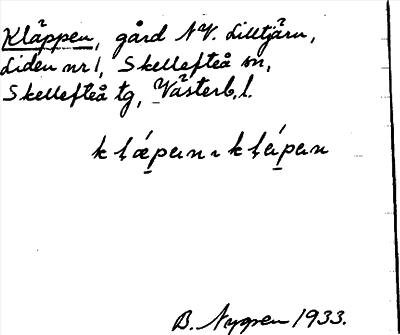 Kläppen, gård NV. Lilltjärn,
Liden nr 1, Skellefteå sn,
Skellefteå tg, Västerb. l.
B. Nygren 1933.